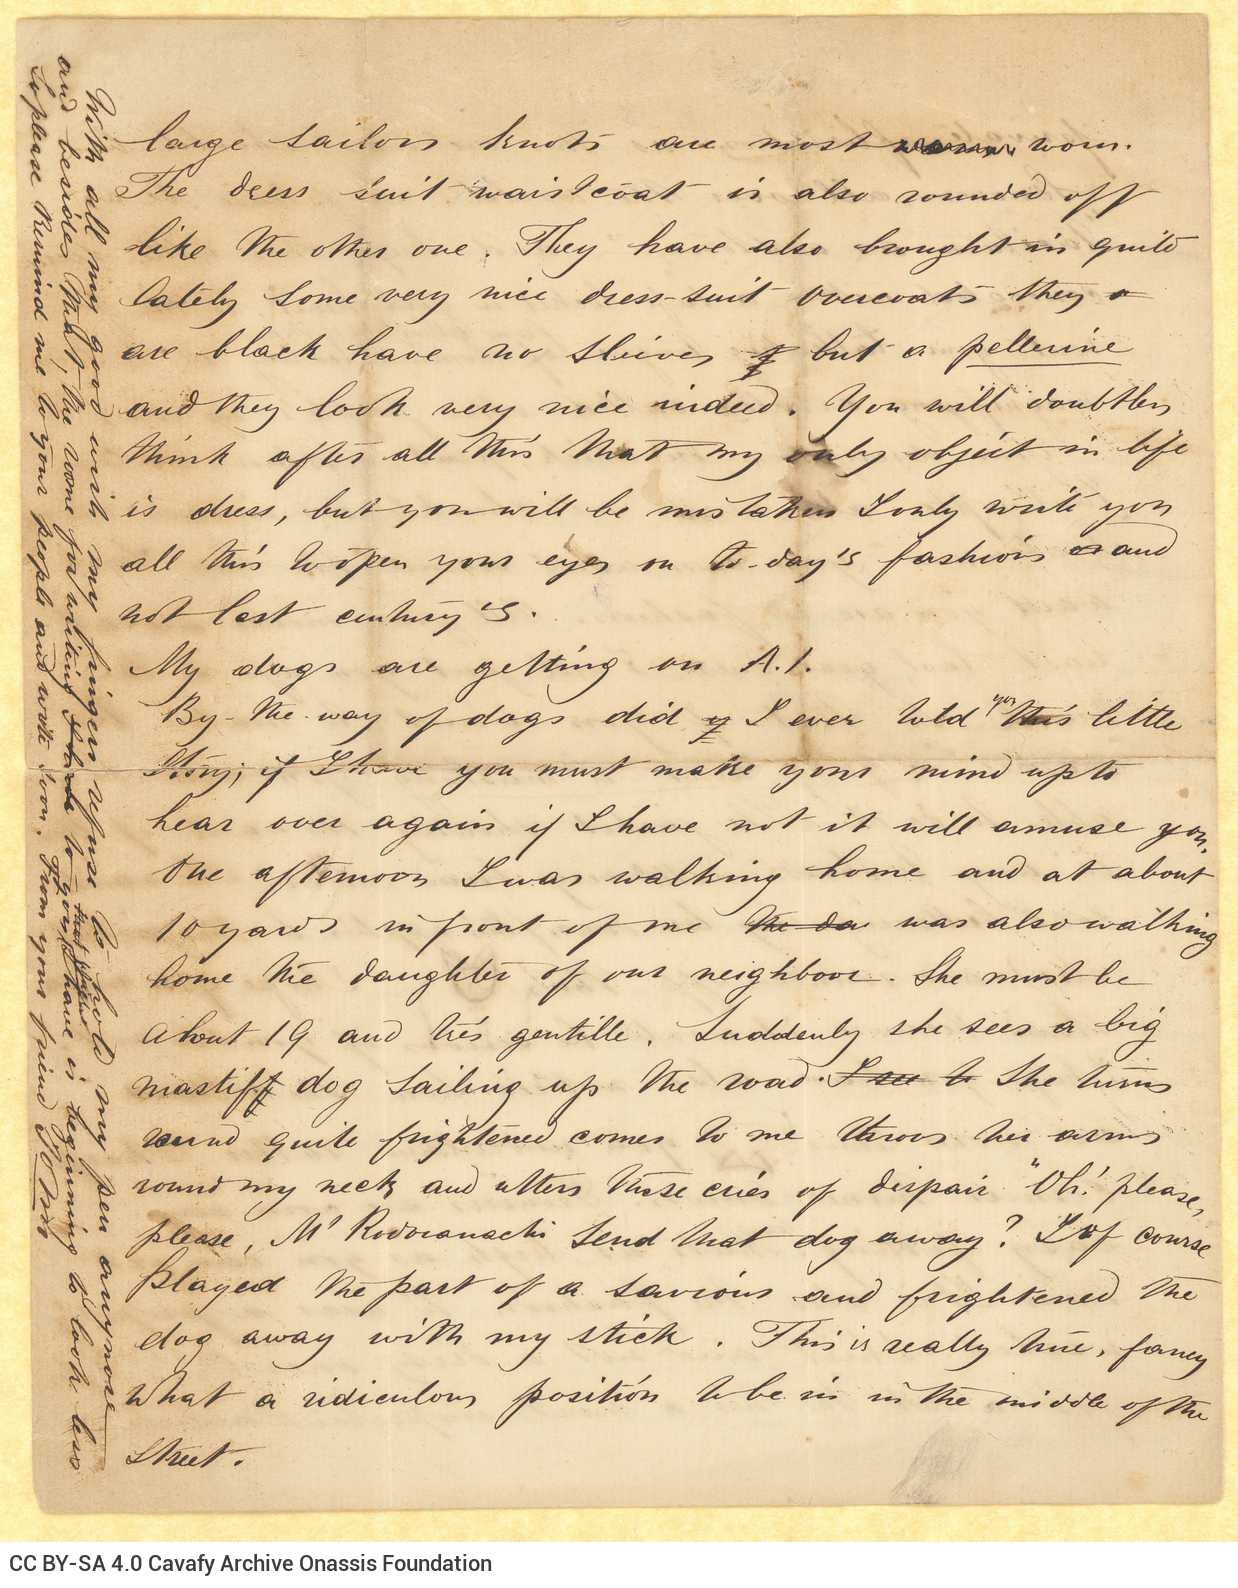 large sailors knots are most worn.
The dress suit waistcoat is also rounded off
like the other one. They have also brought in quite
lately some very nice dress-suit overcoats they
are black have no sleives but a pellerine
and they look very nice indeed. You will doubtless
think after all this that my only object in life
is dress, but you will be mistaken I only write you
all this to open your eyes on to-day's fashions and
not last century's.
My dogs are getting on A.1.
By-the-way of dogs did I ever told you this little
story; if I have you must make your mind up to
hear over again if I have not it will amuse you.
One afternoon I was walking home and at about
10 yards in front of me the da was also walking
home the daughter of our neighboor. She must be
about 19 and très gentille. Suddenly she sees a big
mastiff dog sailing up the road. I see to She turns
round quite frightened comes to me throws her arms
round my neck and utters these cries of dispair "Oh! please,
please, Mr Rodocanachi send that dog away? I of course
played the part of a saviour and frightened the
dog away with my stick. This is really true, fancy
what a ridiculous position to be in in the middle of the
street.
With all my good wish my fingers refuse to hold my pen anymore
and besides that, the room for writing to you that I have is beginning to look less
So please remind me to your people and write soon. From your friend
CC BY-SA 4.0 Cavafy Archive Onassis Foundation